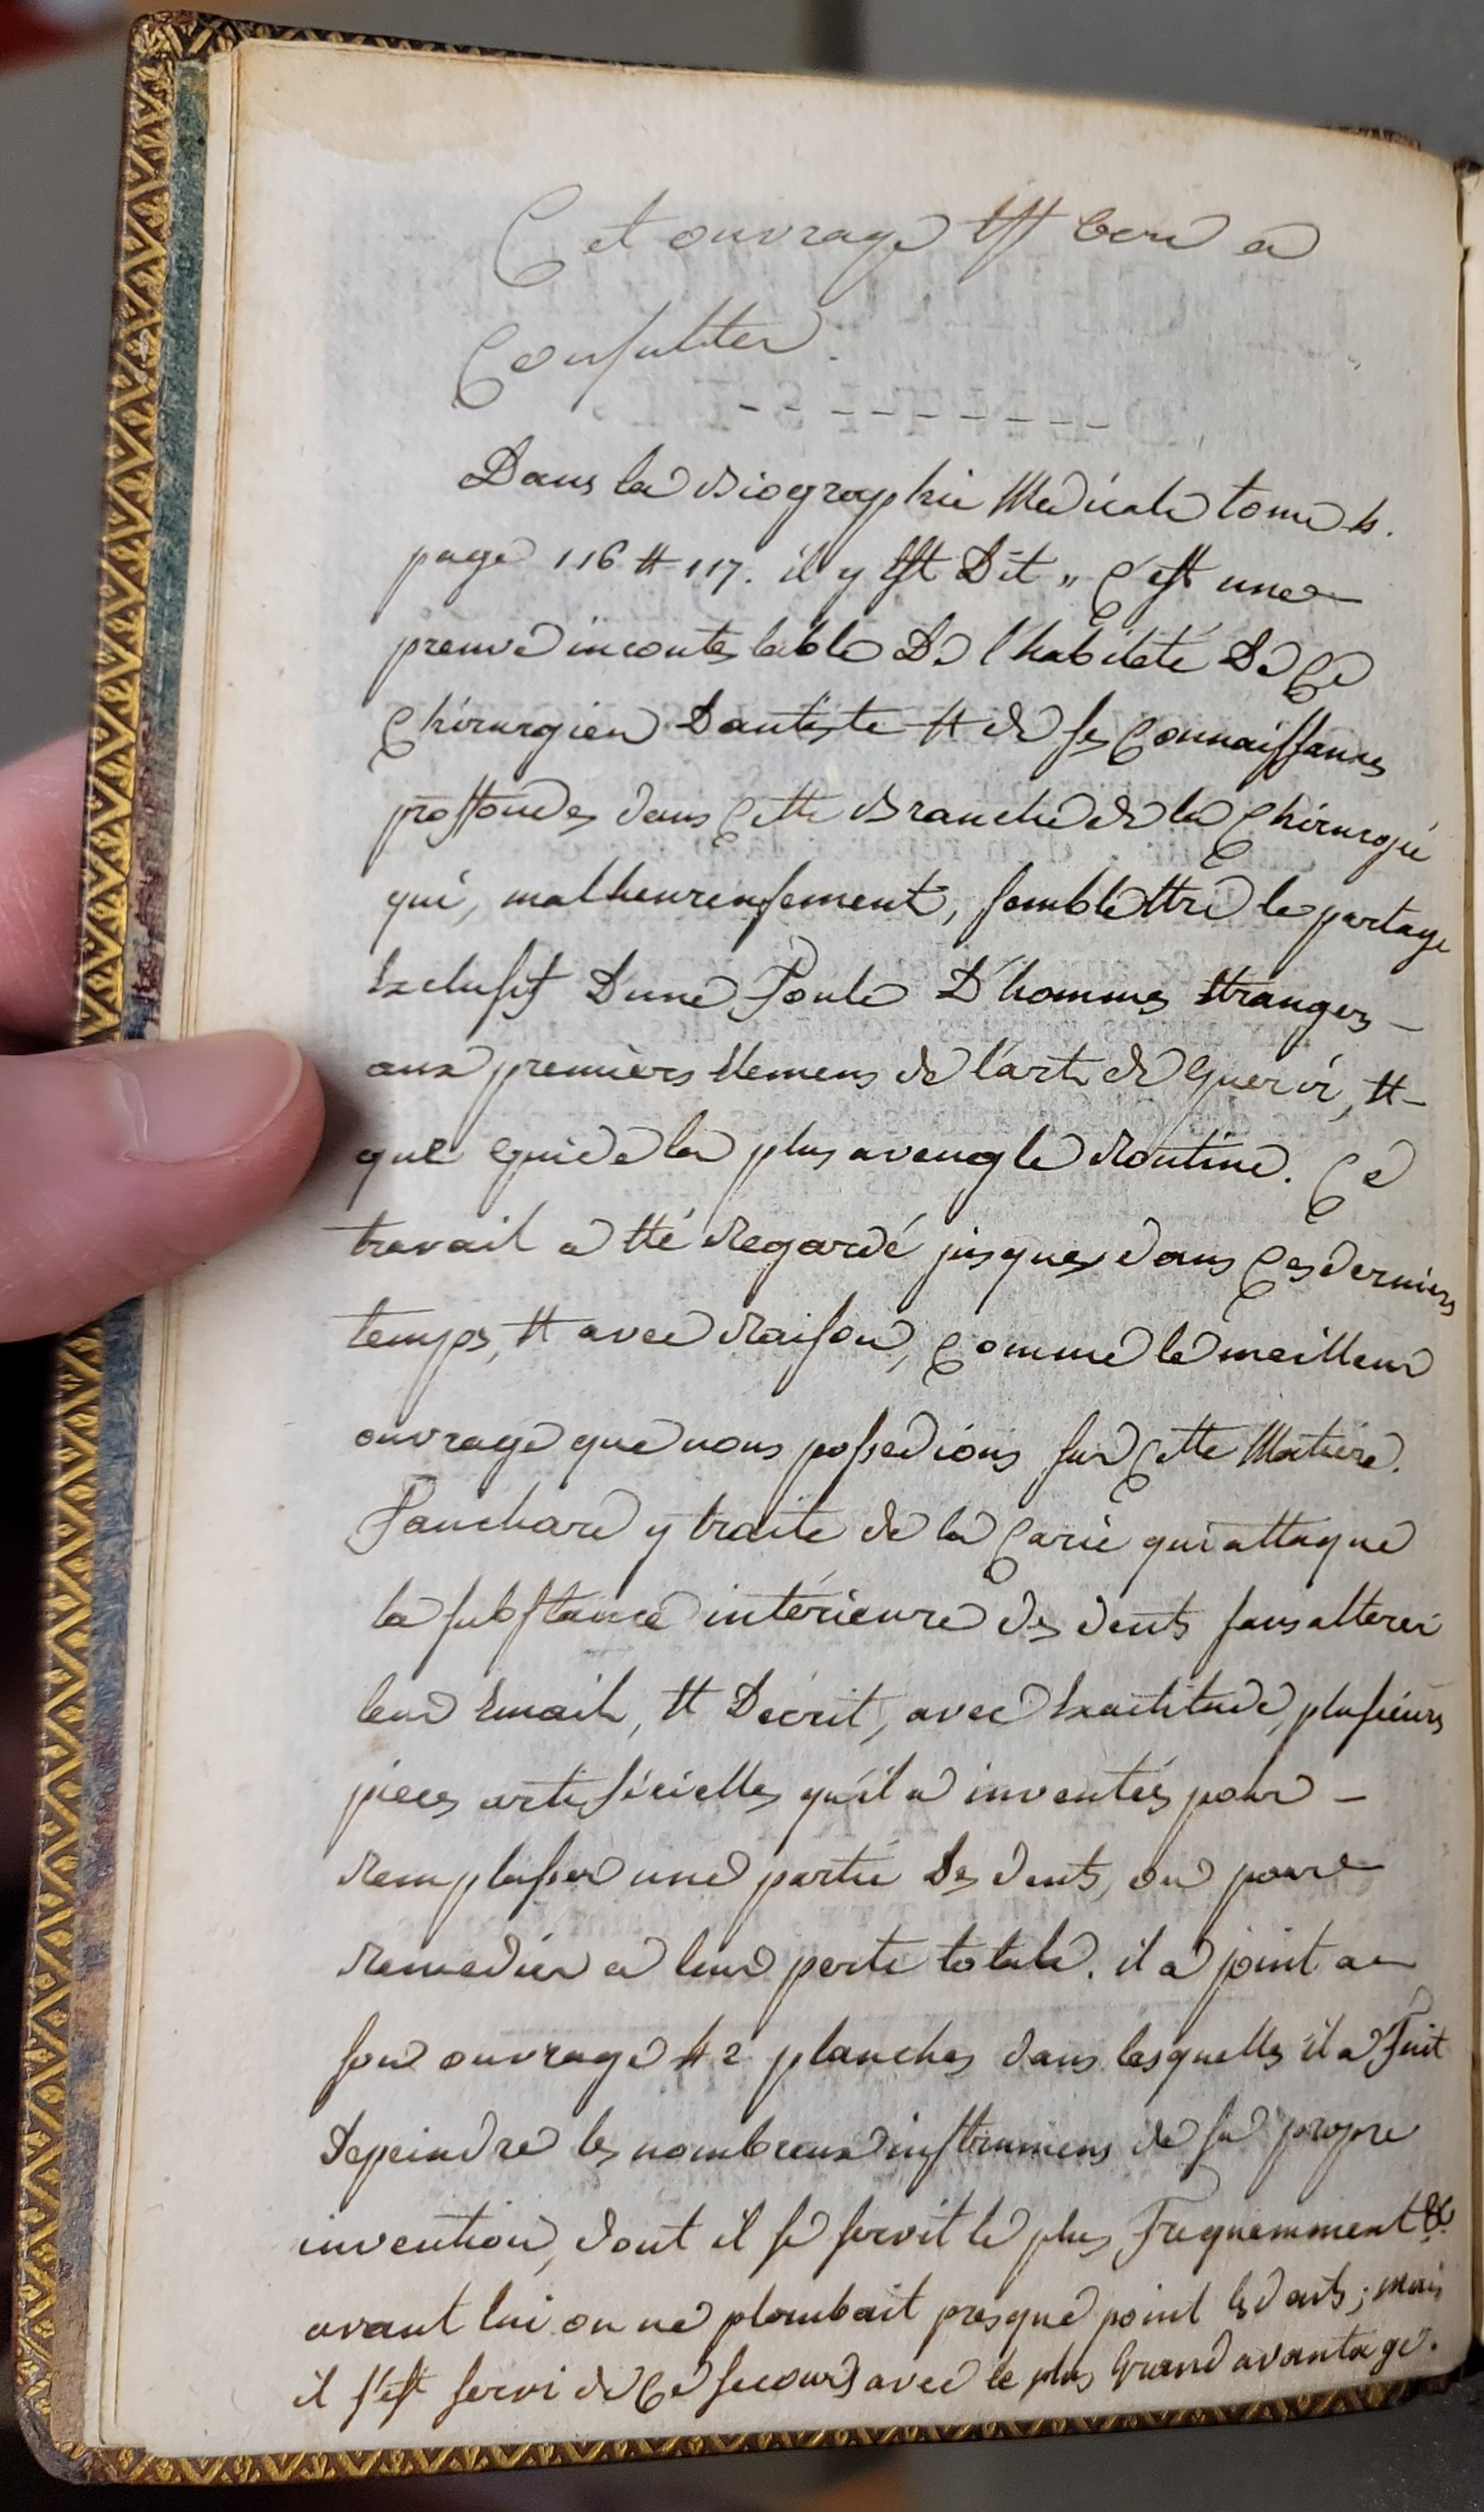 Cet ouvrage Est bon a
Consulter.
Dans la Biographie Medicale tome 4.
page 116 Et 117. il y Est Dit „ C'est une
preuve incontestable De l'habileté De Ce
Chirurgien Dantiste Et de ses Connaissances
proffondes dans Cette Branche de la Chirurgie
qui, malheureusement, semble Etre le partage
Exclusif D'une Foule D'hommes Etrangers -
aux premiers Elemens de l'art de Guerir, Et -
que Guide la plus aveugle Routine. Ce
travail a Eté Regardé jusques dans Ces derniers
temps, Et avec Raison, Comme le meilleur
ouvrage que nous possedions sur Cette Matiere.
Fauchard y traite de la Carie qui attaque
la substance intérieure des dents sans alterer
leur Email, Et Décrit, avec Exactitude, plusieurs
pieces artificielles qu'il a inventés pour -
Remplasser une partie Des dents, ou pour
Remedier a leur perte totale. il a joint a
son ouvrage 42 planches dans lesquelles il a Fait
Depeindre les nombreux instrumens de sa propre
invention, dont il se servit le plus Frequemment &c.
avant lui on ne plombait presque point les dents; mais
il s'est servi de Ce secours avec le plus Grand avantage.